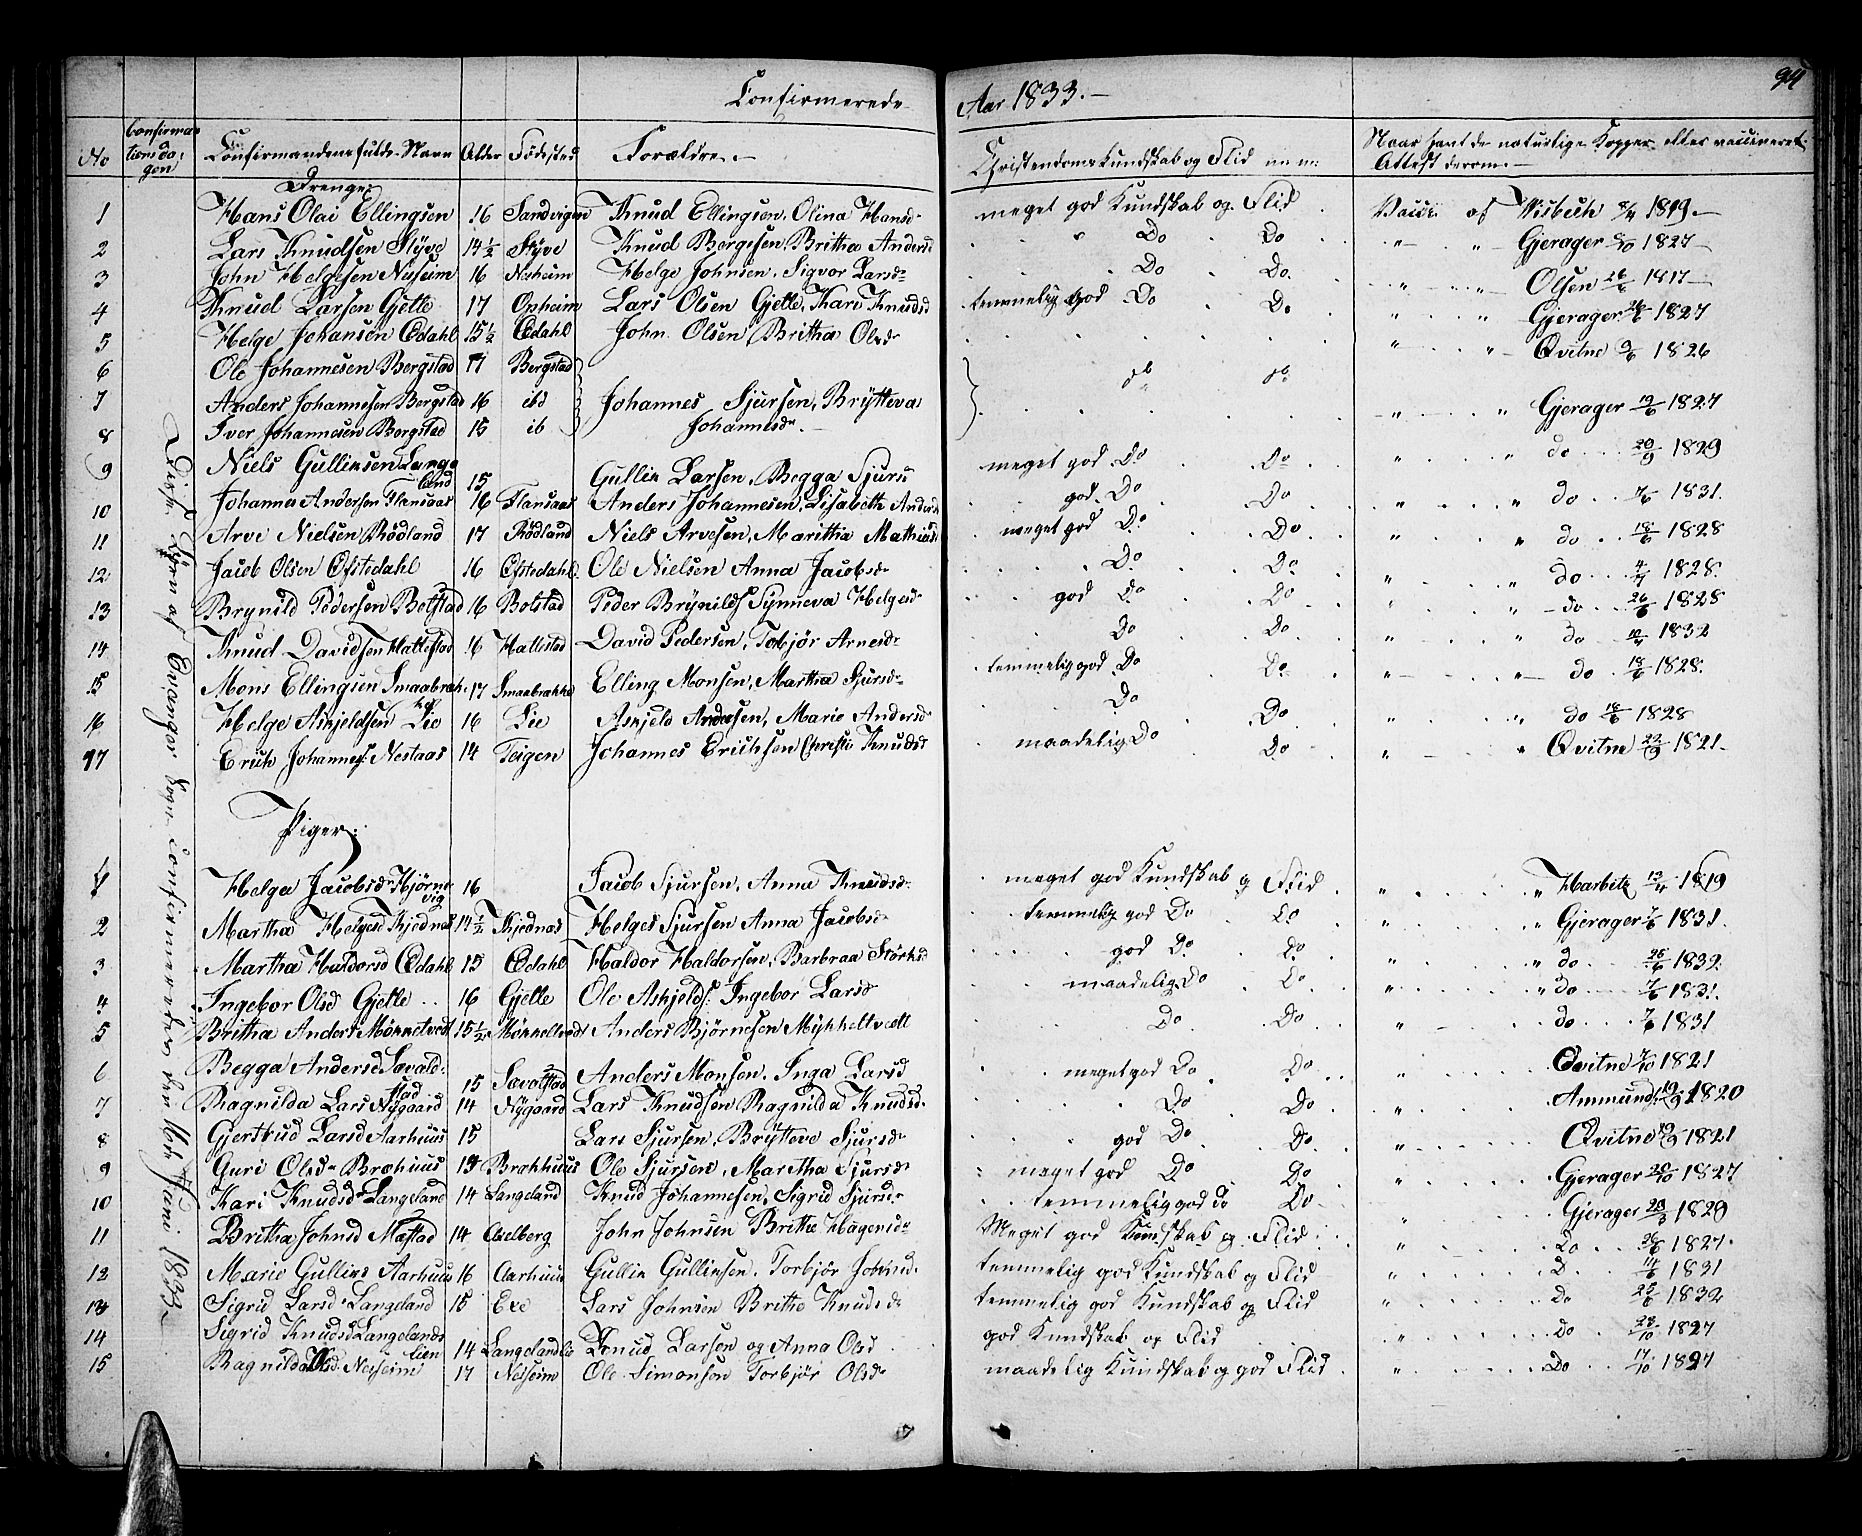 Confirmerede
Aar 1833.-
94
No
Confirmationsdagen
Confirmandens fulde Navn
Alder
Fødested
Forældre.-
Christendoms kundskab og Flid m m:
Naar havt de naturlige Kopper eller vaccineret.
Attest derom.-
Drenge:
1 Hans Olai Ellingsen 16 Sandvigen Knud Ellingsen, Olina Hansd. meget god Kundskab og Flid Vacci af Wisbech 8/4 1819.-
2 Lars Knudsen Styve 14½ Styve Knud Børgesen, Britha Andersd Do Do " " Gjerager 1827
3 John Helgesen Nesheim 16 Nesheim Helge Johnsen, Sigvor Larsd Do Do. " " Olsen 26/6 1817
4 Knud Larsen Gjelle 17 Opheim Lars Olsen Gjelle, Kari Knudsd temmelig god Do Do " " Gjerager 26/6 1827
5 Helge Johansen Ødahl 15½ Ødahl John Olsen Britha Olsd " " Qvitne 9/6 1826
6 Ole Johannesen Bergstad 17 Bergstad do do
7 Anders Johannesen Bergstad 16 ibd Johannes Sjursen, Brytteva " " Gjerager 19/6 1827
8 Iver Johannesen Bergstad 15 ib Johannesd. " " do 20/9 1829
9 Niels Gullinsen Langeland 15 Gullin Larsen, Begga Sjurs meget god Do Do " " do 7/6 1831.
10 Johannes Andersen Flansaas 16 Flansaas Anders Johannesen, Lisabeth Andersd god Do Do
11 Arve Nielsen Rødland 17 Rødland Niels Arvesen, Marittha Mathiasd meget god Do Do " " do 18/6 1828
12 Jacob Olsen Øfstedahl 16 Øfstedahl. Ole Nielsen Anna Jacobsd Do Do " " do 4/7 1828.
13 Brynild Pedersen Bolstad 16 Bolstad Peder Brynilds Synneva Helgesd god Do Do " " do 26/6 1828
14 Knud Davidsen Hattestad 16 Hattestad David Pedersen, Torbjør Arnesd Do Do " " do 1832
15 Mons Ellingsen Smaabrække 17 Smaabrække Elling Monsen, Martha Sjursd temmelig god Do Do " " do 18/6 1828.
16 Helge Askjeldsen Lie 16 Lie Askjeld Andersen, Marie Andersd Do Do " " do 18/6 1828
17 Erich Johannes: Nestaas 14 Teigen Johannes Erichsen Christi Knudsd maadelig Do Do " " Qvitne 22/9 1821.
Disse Børn af Evanger Sogn confirmerede den 16de Juni 1833
Piger:
1 Helga Jacobsd Hjørnevig 16 Jacob Sjursen, Anna Knudsd meget god Kundskab og Flid " " Harbitz 13/4 1819
2 Martha Helgesd Kjednæs 14½ Kjednæs Helges Sjursen Anna Jacobsd temmelig god Do Do " " Gjerager 7/6 1831.
3 Martha Haldorsd Ødahl 15 Ødahl Haldor Haldorsen, Barbraa Størksd god Do Do " " do 26/6 1832.
4 Ingebor Olsd Gjelle 16 Gjelle Ole Askjelds: Ingebor Larsd maadelig Do Do " " do 7/6 1831.
5 Britha Anders Mønnetvedt 15½ Mønnetvedt Anders Bjørnesen Mykheltvett Do Do " do 7/6 1831
6 Begga Andersd Sævaldstad 15 Sævolstad Anders Monsen. Inga Larsd meget god Do Do " Qvitne 1821
7 Ragnilda Lars Nygaard 14 Nygaard Lars Knudsen Ragnilda Knudsd. Do Do " Ammund 1820
8 Gjertrud Larsd Aarhuus 15 Lars Sjursen, Brytteve Sjursd god Do Do " Qvitne 1821
9 Guri Olsd Bræhuus 15 Brækhuus Ole Sjursen, Maretha Sjursd meget god Do Do Gjerager 20/10 1827
10 Kari Knudsd Langeland 14 Langeland Knud Johannesen, Sigrid Sjursd temmelig god do Do " Gjerager 23/3 1829
11 Britha Johnsd Mæstad 14 Axelberg John Johnsen Brithe Hagensd Meget god Kundskab og Flid " Do 26/6 1827.
12 Marie Gullins Aarhuus 16 Aarhuus Gullin Gullinsen, Torbjør Johnsd. temmelig god Kundskab og Flid " D. 1831
13 Sigrid Larsd Langeland 15 Exe Lars Johnsen Brithe Knudsd temmelig god Kundskab og Flid " Do 25/6 1832
14 Sigrid Knudsd Langelandslien 14 Langelandlie Knud Larsen og Anna Olsd god Kundskab og Flid " Do 23/10 1827
15 Ragnilda Olsd. Neiseim 17 Neiseim Ole Simonsen Torbjør Olsd maadelig Kundskab og god Flid " Do 17/10 1827